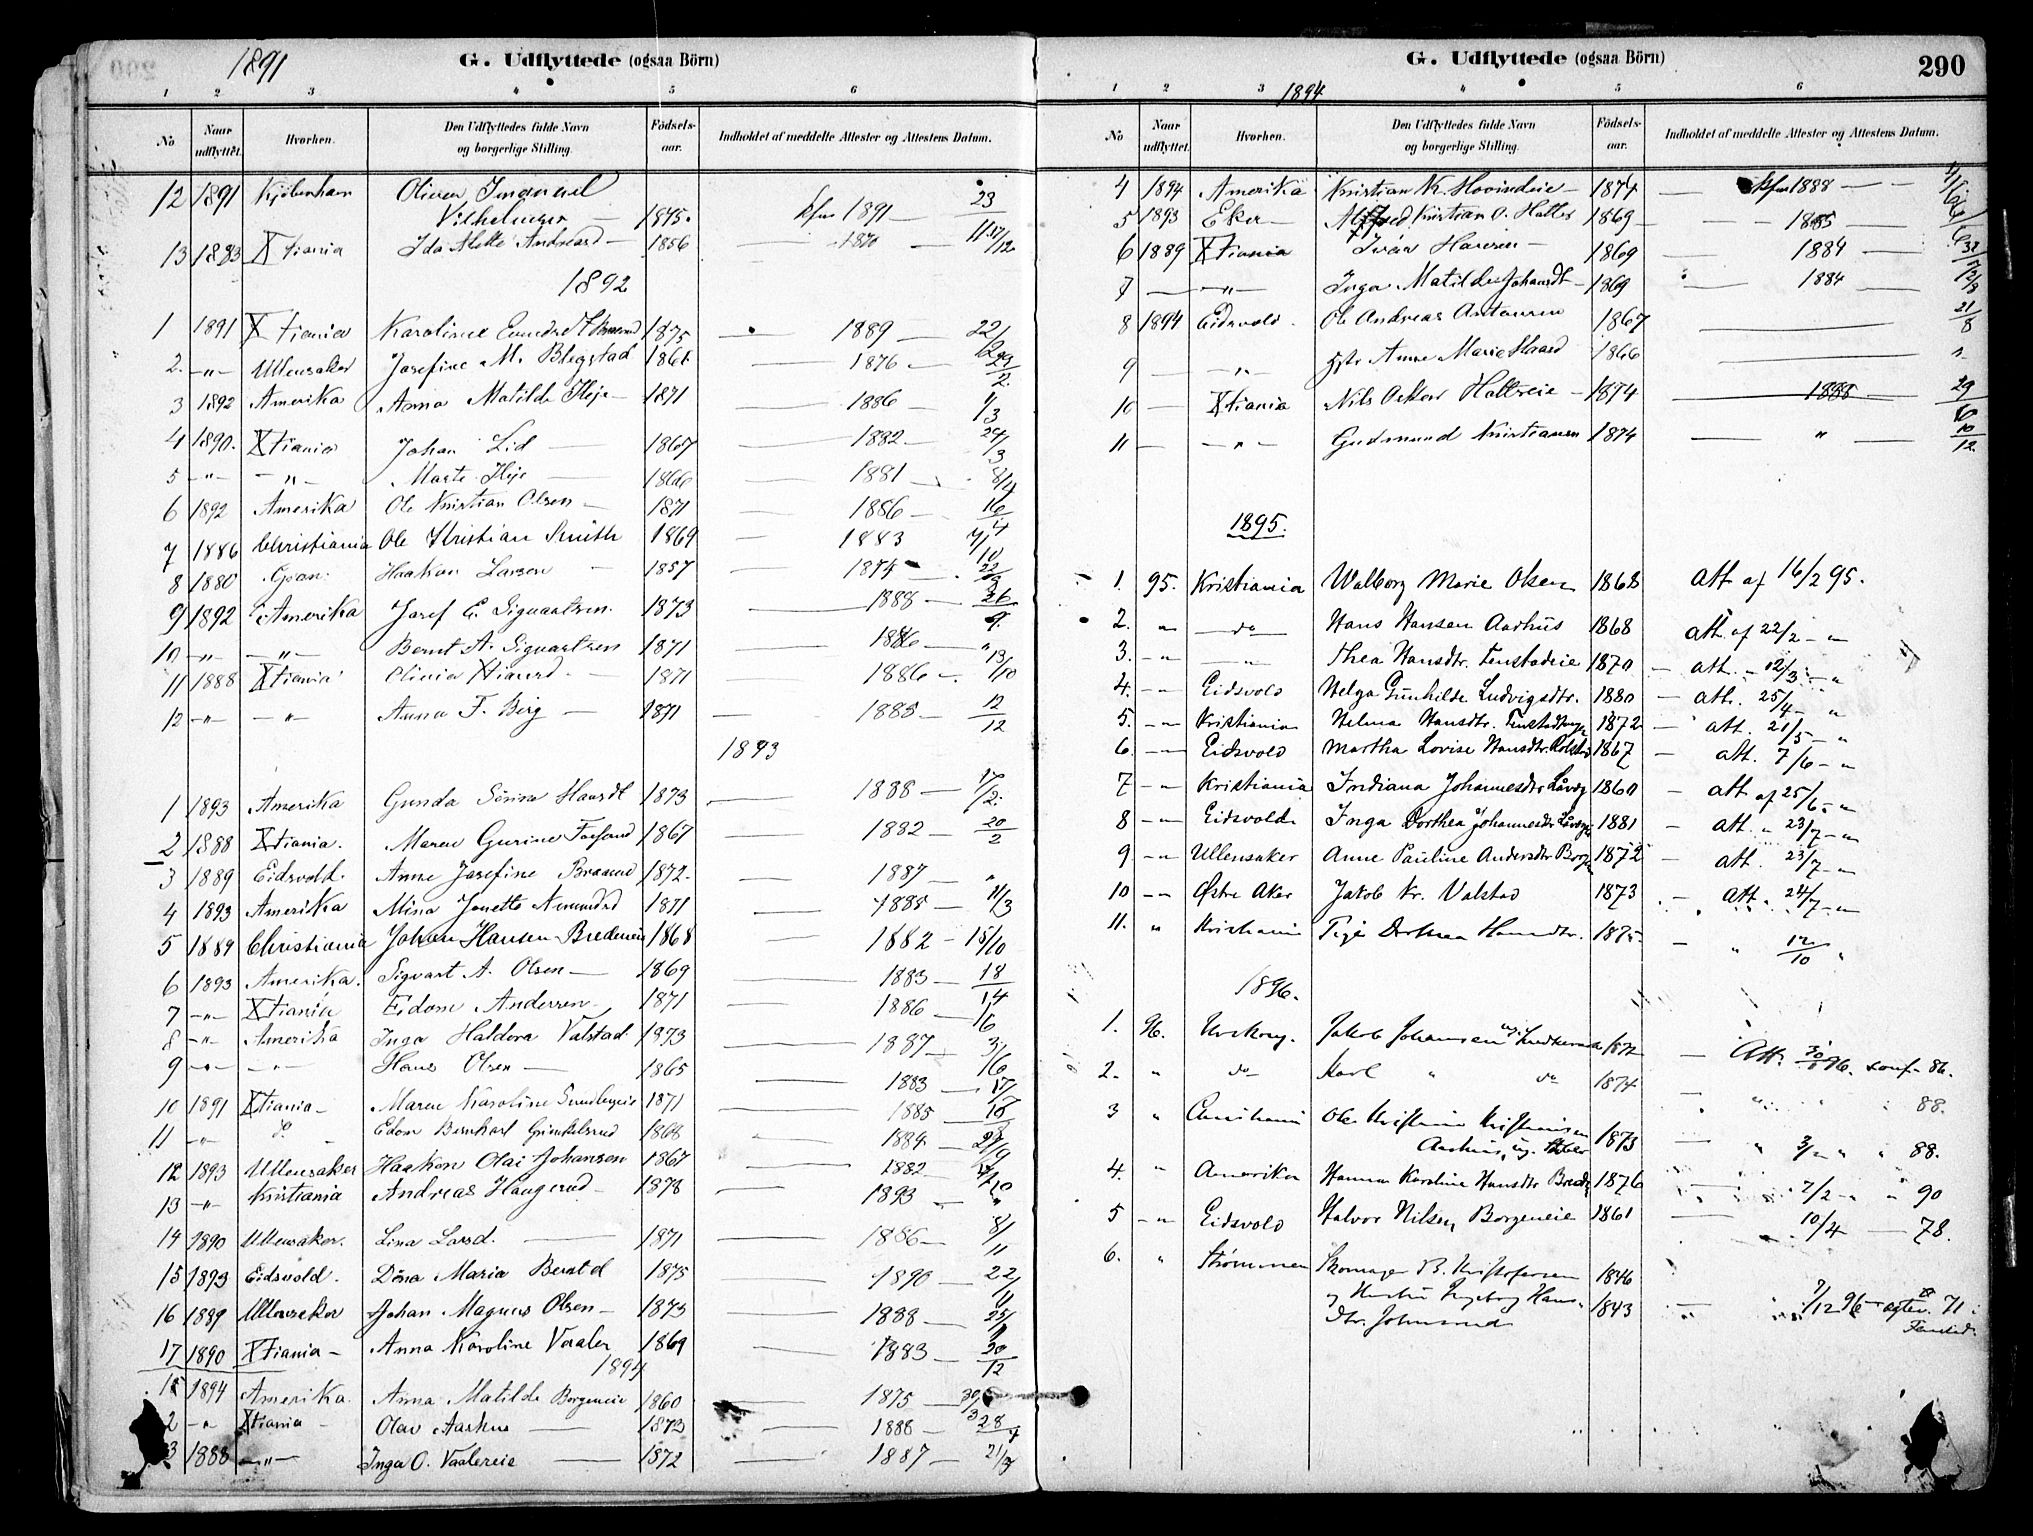 1891
G. Udflyttede (ogsaa Börn)
1 2 3 4 5 6
No
Naar udflyttet.
Hvorhen.
Den Udflyttedes fulde Navn og borgerlige Stilling.
Födsels-aar.
Indholdet af meddelte Attester og Attestens Datum.
12 1891 Kjöbenhavn Oliver
Vilhelmsen — 1875. kfm 1891 — 23/11
13 1883 Xtiania Ida Mette — 1856 — 1870 — 17/12
1892
1 1891 Xtiania Karoline 1875 — 1889 — 22/1
2. -"- Ullensaker Josefine M. Blegstad 1861 — 1876 — 29/2
3 1892 Amerika Anna Matilde Heje — 1871 — 1886 — 1/3
4 1890. Xtiania Johan Lid — 1867 — 1882 — 24/3
5 -"- -"- Marte Heje 1866 — 1881 — 8/4
6 1892 Amerika Ole Kristian Olsen — 1871 — 1886 — 16/4
7 1886 Christiania Ole Kristian Smith 1869 — 1883 7/10
8 1880 Gran. Haakon Larsen — 1857 — 1874 — 22/9
9 1892 Amerika Josef E. Siguartsen. 1873 — 1888 — 26/9.
10 -"- -"- Bernt A. Siguartsen 1871 — 1886 — "
11 1888 Xtiania Olivia — 1871 — 1886 — 13/10
12 -"- -"- Anna F. Berg — 1871 — 1885 — 12/12
1893
1 1893 Amerika Gunda Sörine Hansdt 1873 — 1888 — 17/2.
2 1888 Xtiania. Maren Gurine 1867 — 1882 — 20/2
3 1889 Eidsvold. Anne Josefine 1872. — 1887 — "
4 1893 Amerika Mina Jonette 1871 — 1885 — 11/3
5 1889 Christiania Johan Hansen 1868 — 1882 — 15/10
6 1893 Amerika. Sigvart A. Olsen — 1869 — 1883 — 18/4
7 -"- Xtiania Edom Andersen 1871 — 1886 — 1/6
8 -"- Amerika Inga Haldora Valstad 1873 — 1887 — 3/6
9 -"- -"- Hans Olsen — 1865 — 1883 — 17/7
10 1891 Xtiania — Maren Karoline 1871 — 1885
11 -"- do - Edom Bernhart 1868 — 1884 — 27/9
12 1893 Ullensaker Haakon Olai Johansen 1867 — 1882
13 -"- Kristiania Andreas Haugerud — 1878 — 1893 — "
14 1890 Ullensaker. Lina Larsd. — 1871 — 1886 — 8/11
15 1893 Eidsvold. Dina Maria Berntd 1875 — 1890 — 22/11
16 1889 Ullensaker Johan Magnus Olsen — 1873 — 1888 — 25/11
17 1890 Xtiania — Anna Karoline Vaaler 1869 — 1883 — 30/12
1894
1 1894 Amerika. Anna Matilde Borgeneie 1860 — 1875 — 30/3
2 -"- Xtiania — Olav Aarhus — 1873 — 1888 — 28/4
3 1888 -"- Inga O. Vaalereie — 1872 — 1887 — 21/7
G. Udflyttede (ogsaa Börn)
290
1 2 3 4 5 6
1894
No
Naar udflyttet.
Hvorhen.
Den Udflyttedes fulde Navn og borgerlige Stilling.
Födsels-aar.
Indholdet af meddelte Attester og Attestens Datum.
4 1894 Amerika Kristian K. — 1874 — kfm 1888 —
5 1893 Eker — Alfred Kristian O. 1869 — 1885
6 1889 Xtiania — 1869 — 1884 —
7 — -"- Inga Matilde Johansdt — 1869 — 1884 —
8 1894 Eidsvold. Ole Andreas Antonsen 1867 — 21/8
9 — -"- Anne Marie 1866 — "
10 — Xtiania Nils Oskar — 1874 — 1888 — 29/10
11 — -"- Gudmund Kristiansen 1874 — " — 10/12
1895.
1. 95. Kristiania Walborg Marie Olsen 1868 Att. af 16/2 95.
2. " do Hans Hansen Aarhus 1868 att. af 22/2 - "
3. -" -"- Thea Hansdtr. Tenstadeie 1870 — att. - 12/3 - "
4. -" Eidsvold Helga Gunhilde Ludvigsdtr. 1880 — att. 25/4 - "
5. -" Kristiania Helma Hansdtr. 1872 — att. 21/5 - "
6. -" Eidsvold Martha Lovise Hansdtr. 1867 — att. 7/6 - "
7 -" Kristiania Indiana Johannesdtr 1860 — att. af 25/6 - "
8 -" Eidsvold Inga Dorthea Johannesdtr 1881 — att. " 23/7 - "
9 -" Ullensaker Anne Pauline Andersdtr 1872 — att. 23/7 - "
10 -" Østre Aker Jakob Kr. Valstad 1873 — Att. " 24/7 - "
11. " Kristiania Hansdtr. 1875 — " 12/10 "
1896.
1. 96. Urskoug. Jakob Johansen 1872 — Att. 30/ 96. konf. 86.
2. " do Karl " do 1874 " " 88.
3 " Ole Kristian Kristiansen
Aarhus, ug. 1873 — " 3/2 " " 88.
4. " Amerika Hanna Karoline Hansdtr 1876 — 7/2 - " " 90
5 -" Eidsvold Halvor Nilsen Borgeneie 1861 — 10/4 — 78.
6. " Strømmen Skomager B. Kristofersen 1846
og Hustru Ingeborg Hans-
dtr. 1843 — 7/12 96 — 71